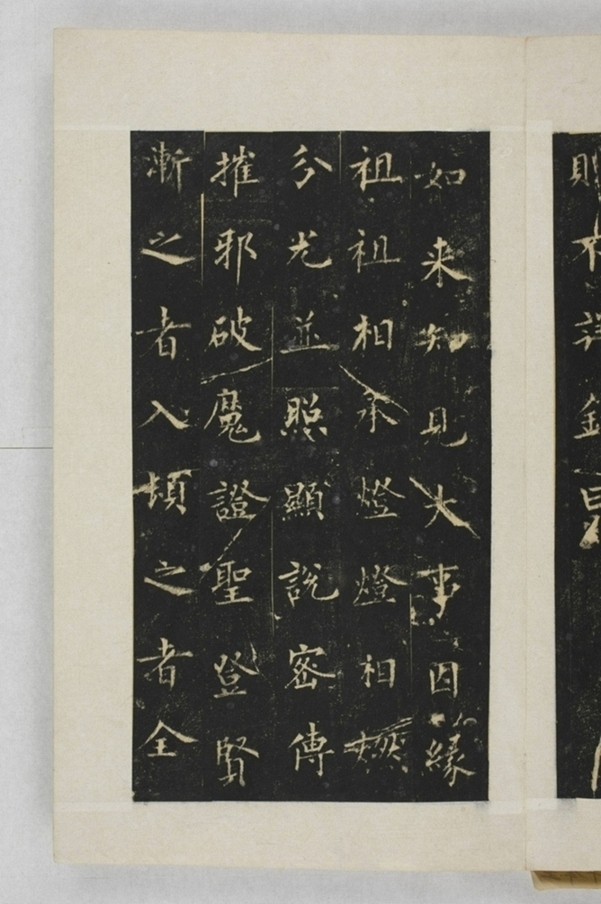 則不祥銘曰
如来知見大事因緣
祖祖相承燈燈相燃
分光並照顯說密傳
摧邪破魔證聖登賢
漸之者入頓之者全